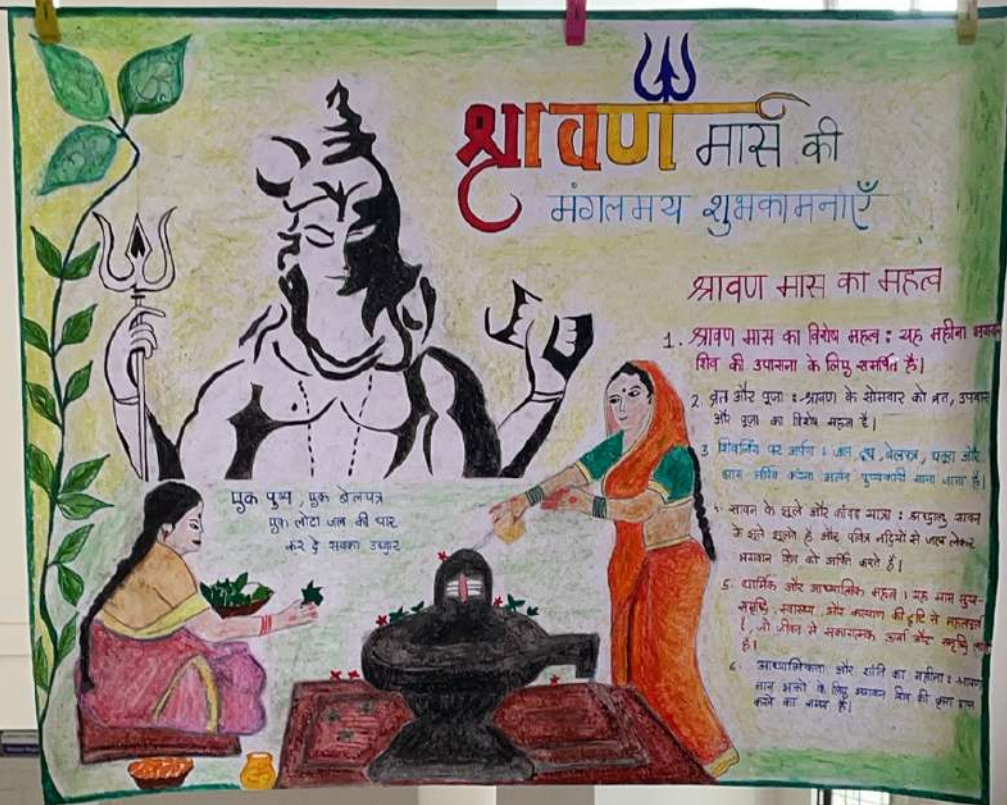 श्रावण मास की
मंगलमय शुभकामनाएँ
श्रावण मास का महत्व
1. श्रावण मास का विशेष महत्व : यह महीना
शिव की उपासना के लिए समर्पित है।
2. व्रत और पूजा : श्रावण के सोमवार को व्रत, उपवास
और पूजा का विशेष महत्व है।
3 शिवलिंग पर अर्पण : जल, बेलपत्र, धतूरा और
माना जाता है।
4. सावन के झूले और कांवड़ यात्रा : श्रद्धालु सावन
के झूले झूलते है और पवित्र नदियों से जल लेकर
भगवान शिव को अर्पित करते हैं।
5. धार्मिक और आध्यात्मिक महत्व : यह मास सुख-
समृद्धि, स्वास्थ्य और कल्याण की दृष्टि से महत्वपूर्ण
है, जो जीवन मे सकारात्मक ऊर्जा और समृद्धि
है।
6. आध्यात्मिकता और शांति का महीना : श्रावण
मास भक्तो के लिए भगवान शिव की कृपा प्राप्त
करने का समय है।
एक पुष्प, एक बेलपत्र
एक लोटा जल की धार
कर दे सबका उद्धार